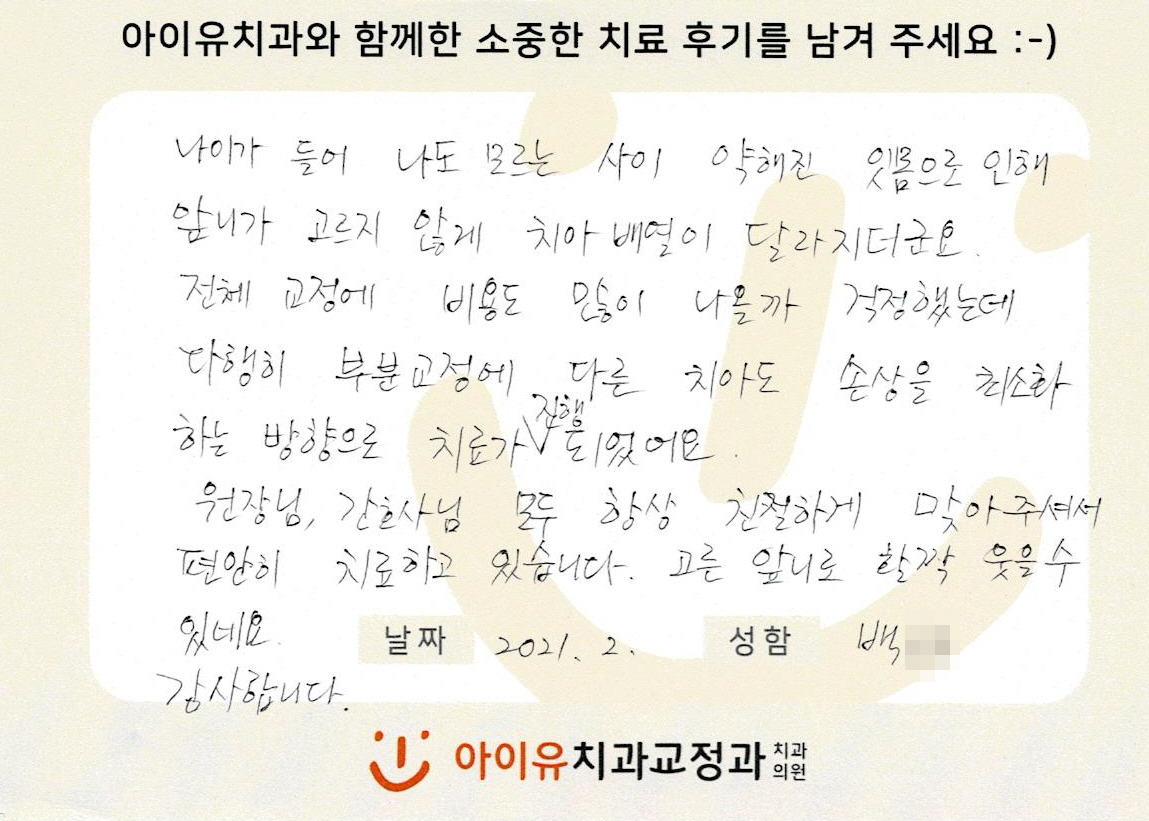 아이유치과와 함께한 소중한 치료 후기를 남겨 주세요 :-)
나이가 들어 나도 모르는 사이 약해진 잇몸으로 인해
앞니가 고르지 않게 치아 배열이 달라지더군요.
전체 교정에 비용도 많이 나올까 걱정했는데
다행히 부분교정에 다른 치아도 손상을 최소화
하는 방향으로 치료가 진행 되었어요.
원장님, 간호사님 모두 항상 친절하게 맞아주셔서
편안히 치료하고 있습니다. 고른 앞니로 활짝 웃을 수
있네요.
날짜 2021. 2. 성함 백
감사합니다.
아이유치과교정과 치과
의원